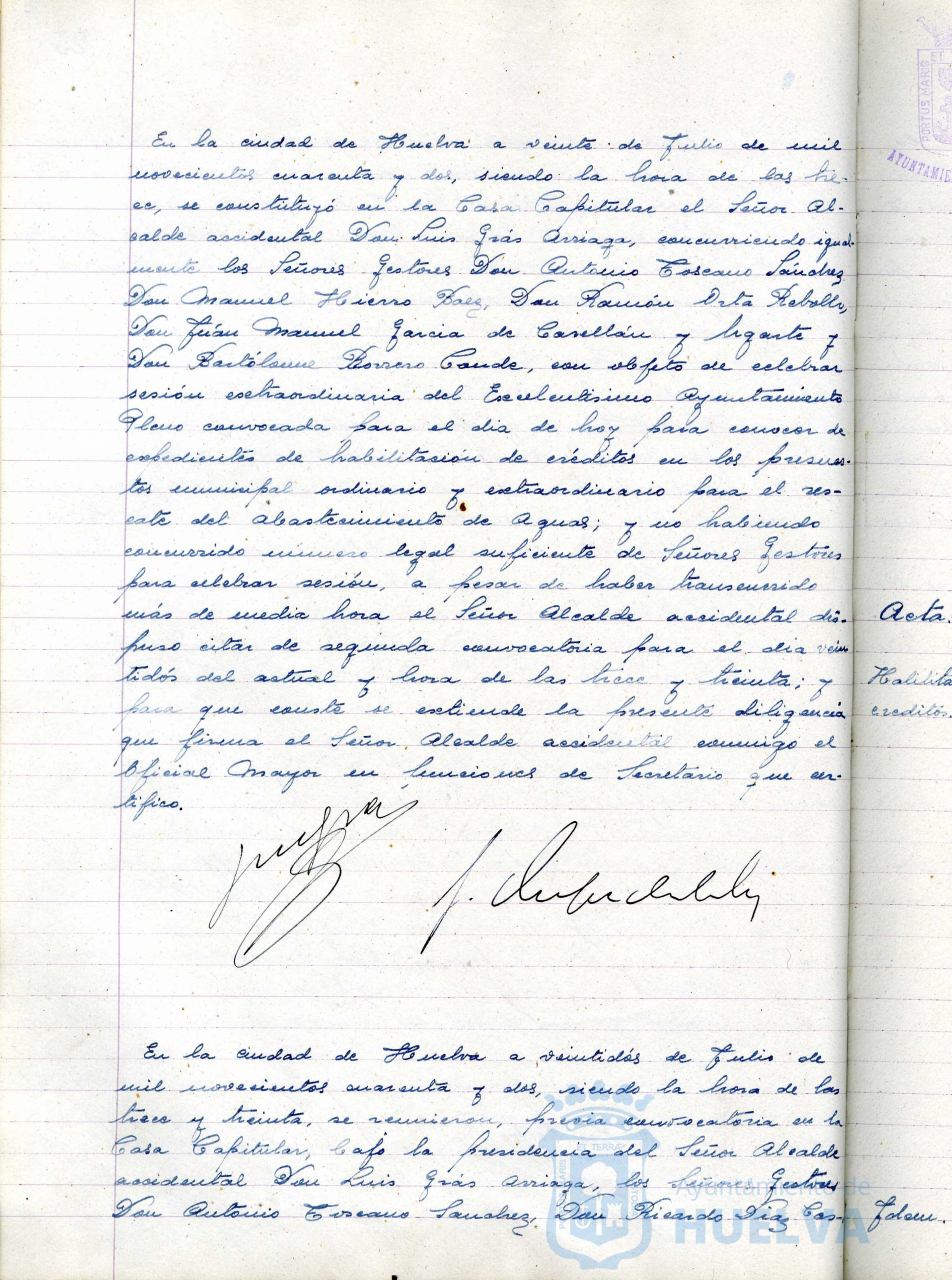 En la ciudad de Huelva a veinte de Julio de mil
novecientos cuarenta y dos, siendo la hora de las tre-
ce, se constituyó en la Casa Capitular el Señor Al-
calde accidental Don Luis Grás Arriaga, concurriendo igual-
mente los Señores Gestores Don Antonio Toscano Sánchez
Don Manuel Hierro Baez, Don Ramón Orta Rebollo,
Don Juán Manuel Garcia de Casellán y Ugarte y
Don Bartólome Borrero Conde, con objeto de celebrar
sesión extraordinaria del Excelentisimo Ayuntamiento
Pleno convocada para el dia de hoy para conocer de
expedientes de habilitación de créditos en los presues-
tos municipal ordinario y extraordinario para el res-
cate del Abastecimiento de Aguas; y no habiendo
concurrido número legal suficiente de Señores Gestores
para celebrar sesión, a pesar de haber transcurrido
más de media hora el Señor Alcalde accidental dis-
puso citar de segunda convocatoria para el dia vein
tidós del actual y hora de las trece y treinta; y
para que conste se extiende la presente diligencia
que firma el Señor Alcalde accidental conmigo el
Oficial Mayor en funciones de Secretario que cer-
tifico.
En la ciudad de Huelva a veintidós de Julio de
mil novecientos cuarenta y dos, siendo la hora de las
trece y treinta, se reunieron, previa convocatoria en la
Casa Capitular, bajo la presidencia del Señor Alcalde
accidental Don Luis Grás Arriaga, los Señores Gestores
Don Antonio Toscano Sanchez, Don Ricardo Diaz Cas-
PORTUS MARIS
AYUNTAMIE
Acta.
Habilita
creditos.
Idem.
Ayuntamiento de
HUELVA